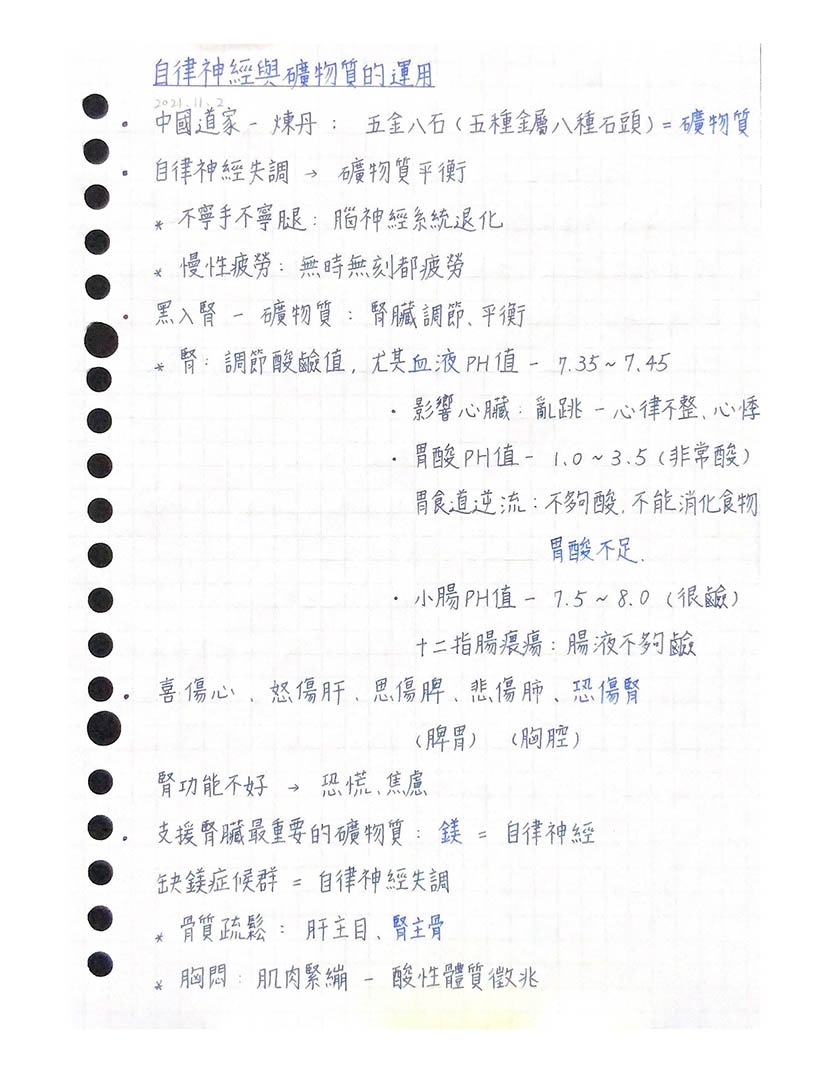 自律神經與礦物質的運用
2021.11.2
• 中國道家 - 煉丹 : 五金八石 (五種金屬八種石頭) = 礦物質
• 自律神經失調 → 礦物質平衡
* 不寧手不寧腿 : 腦神經系統退化
* 慢性疲勞 : 無時無刻都疲勞
• 黑入腎 - 礦物質 : 腎臟調節、平衡
* 腎 : 調節酸鹼值, 尤其血液PH值 - 7.35~7.45
• 影響心臟 : 亂跳 - 心律不整、心悸
• 胃酸PH值 - 1.0~3.5 (非常酸)
胃食道逆流 : 不夠酸, 不能消化食物
胃酸不足.
• 小腸PH值 - 7.5~8.0 (很鹼)
十二指腸瘍 : 腸液不夠鹼
• 喜傷心、怒傷肝、思傷脾、悲傷肺、恐傷腎
(脾胃) (胸腔)
腎功能不好 → 恐慌、焦慮
• 支援腎臟最重要的礦物質 : 鎂 = 自律神經
缺鎂症候群 = 自律神經失調
* 骨質疏鬆 : 肝主目、腎主骨
* 胸悶 : 肌肉緊繃 - 酸性體質徵兆